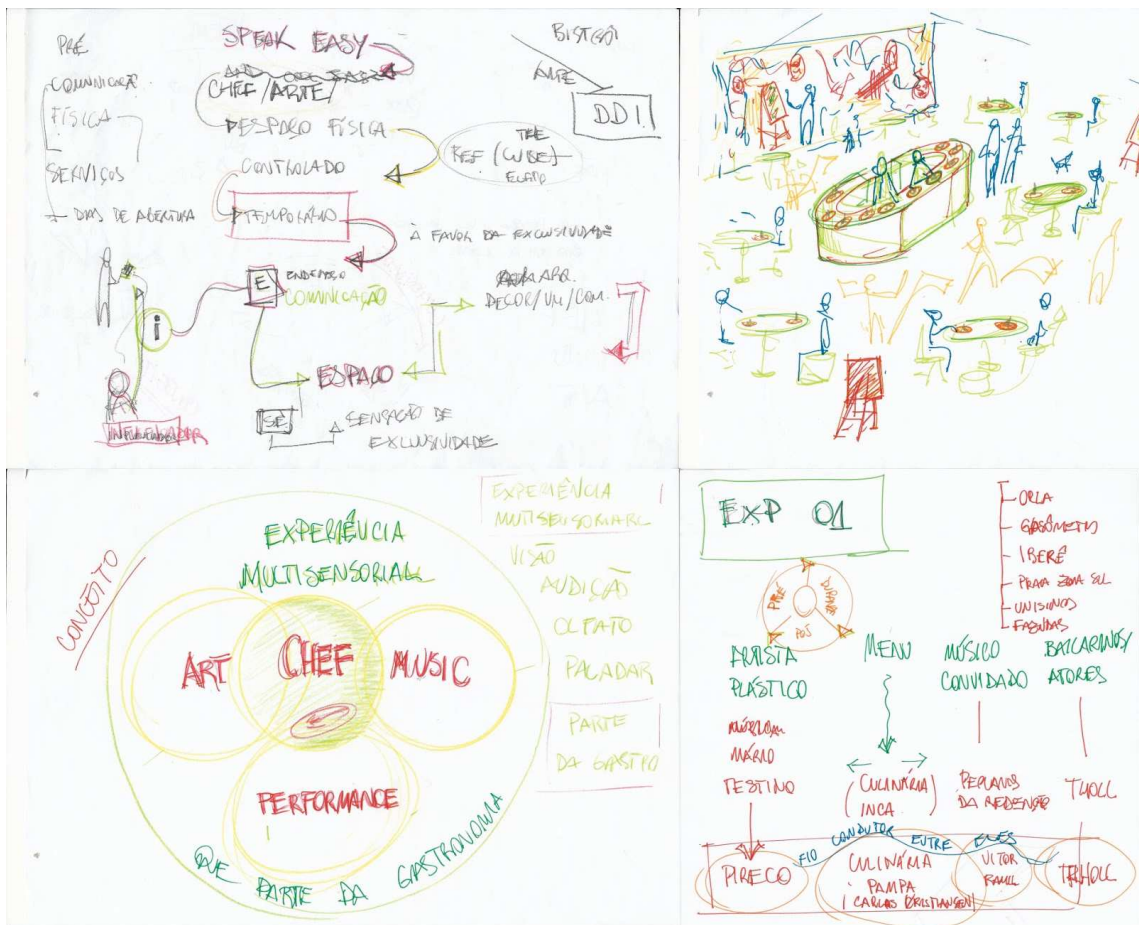 PRÉ
COMUNICAÇÃO
FÍSICA
SERVIÇOS
DIAS DE ABERTURA
SPEAK EASY
CHEF/ARTE/
ESPAÇO FÍSICA
CONTROLADO
TEMPORÁRIO
THE
REF (CUBE)
À FAVOR DA EXCLUSIVIDADE
E
ENDEREÇO
COMUNICAÇÃO
i
ESPAÇO
SENSAÇÃO DE
EXCLUSIVIDADE
ARTE
D.D!
DECOR/VM/COM.
CONCEITO
EXPERIÊNCIA
MULTISENSORIAL
ART
CHEF
MUSIC
PERFORMANCE
QUE PARTE DA GASTRONOMIA
EXPERIÊNCIA
VISÃO
AUDIÇÃO
OLFATO
PALADAR
PARTE
DA GASTRO
EXP 01
PRÉ
DURANTE
PÓS
ORLA
GASÔMETRO
IBERÊ
PRAIA ZONA SUL
UNISINOS
FAZENDAS
ARTISTA
PLÁSTICO
MENU
MÚSICO
CONVIDADO
BAILARINOS/
ATORES
MÁRIO
TESTINO
(CULINÁRIA
INCA)
PERUANOS
DA REDENÇÃO
THOLL
FIO CONDUTOR ENTRE ELES
PIRECO
CULINÁRIA
PAMPA
VITOR
RAMIL